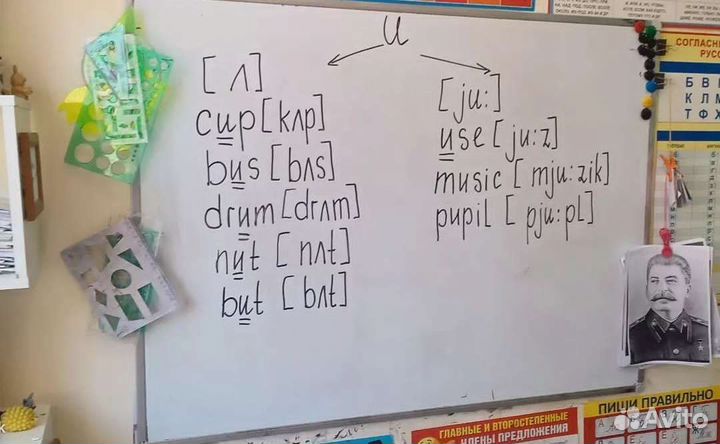 u
[ʌ]
cup [kʌp]
bus [bʌs]
drum [drʌm]
nut [nʌt]
but [bʌt]
[ju:]
use [ju:z]
music [mju:zik]
pupil [pju:pl]
СОГЛАСН
РУС
Б В
К Л М
Т Ф Х
ПИШИ ПРАВИЛЬНО
ГЛАВНЫЕ И ВТОРОСТЕПЕННЫЕ
ЧЛЕНЫ ПРЕДЛОЖЕНИЯ
Avito